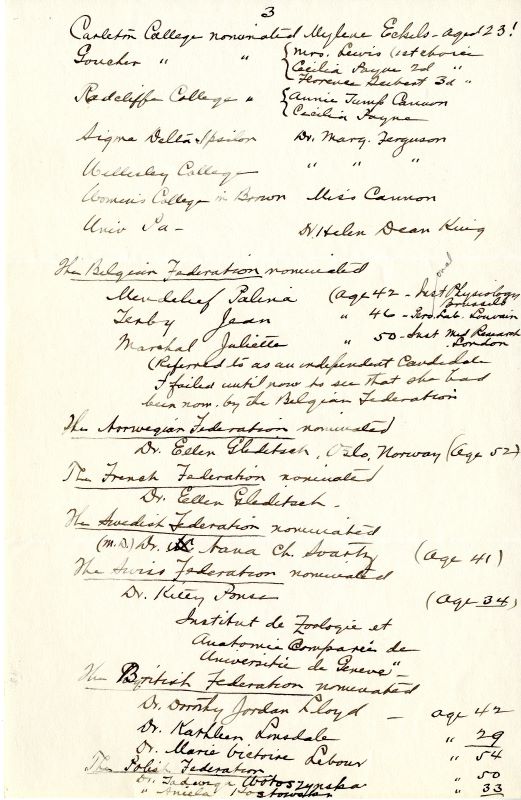 3
Carleton College nominated Mylene Eckels - aged 23!
Goucher " " { Mrs. Lewis (1st choice
Cecilia Payne 2d "
Florence Seibert 3d "
Radcliffe College " { Annie Jump Cannon
Cecilia Payne
Sigma Delta Epsilon Dr. Marg. Ferguson
Wellesley College " " "
Women's College in Brown Miss Cannon
Univ Pa - Dr Helen Dean King
The Belgian Federation nominated
Mendelief Palina (age 42 - Inst Physiology
Brussels
Terby Jean " 46 - Lab. Louvain
Marshal Juliette " 50 - Inst Med Research
London
(Referred to as an independent candidate
I failed until now to see that she had
been nom. by the Belgian Federation
The Norwegian Federation nominated
Dr. Ellen Gleditsch, Oslo, Norway (Age 52)
The French Federation nominated
Dr. Ellen Gleditsch -
The Swedish Federation nominated
(M.D.) Dr. Nana Ch. Svartz (Age 41)
The Swiss Federation nominated
Dr. Kitty Ponse (Age 34)
Institut de Zoologie et
Anatomie Comparée de
Universitie de Geneve"
The British Federation nominated
Dr. Dorothy Jordan Lloyd - age 42
Dr. Kathleen Lonsdale " 29
Dr. Marie Victoire Lebour " 54
The Polish Federation
Dr. Jadwiga Wotoszynska " 50
" Aniela " 33